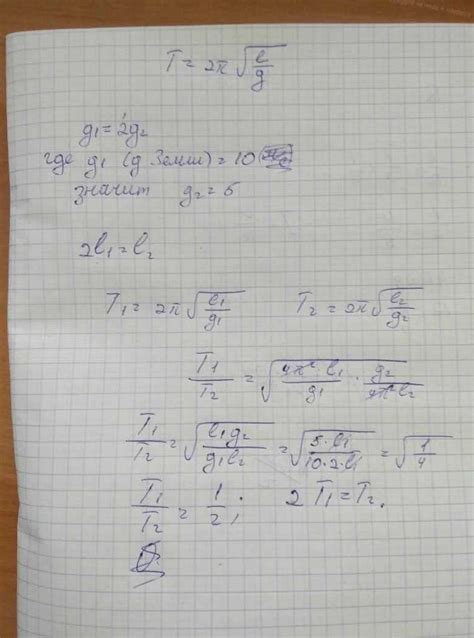 T = 2π √(l/g)
g₁ = 2g₂
где g₁ (g Земли) = 10
значит g₂ = 5
2l₁ = l₂
T₁ = 2π √(l₁/g₁) T₂ = 2π √(l₂/g₂)
T₁/T₂ = √(4π² · l₁/g₁ · g₂/4π² l₂)
T₁/T₂ = √(l₁g₂/g₁l₂) = √(5 · l₁/10 · 2 · l₁) = √(1/4)
T₁/T₂ = 1/2; 2T₁ = T₂.